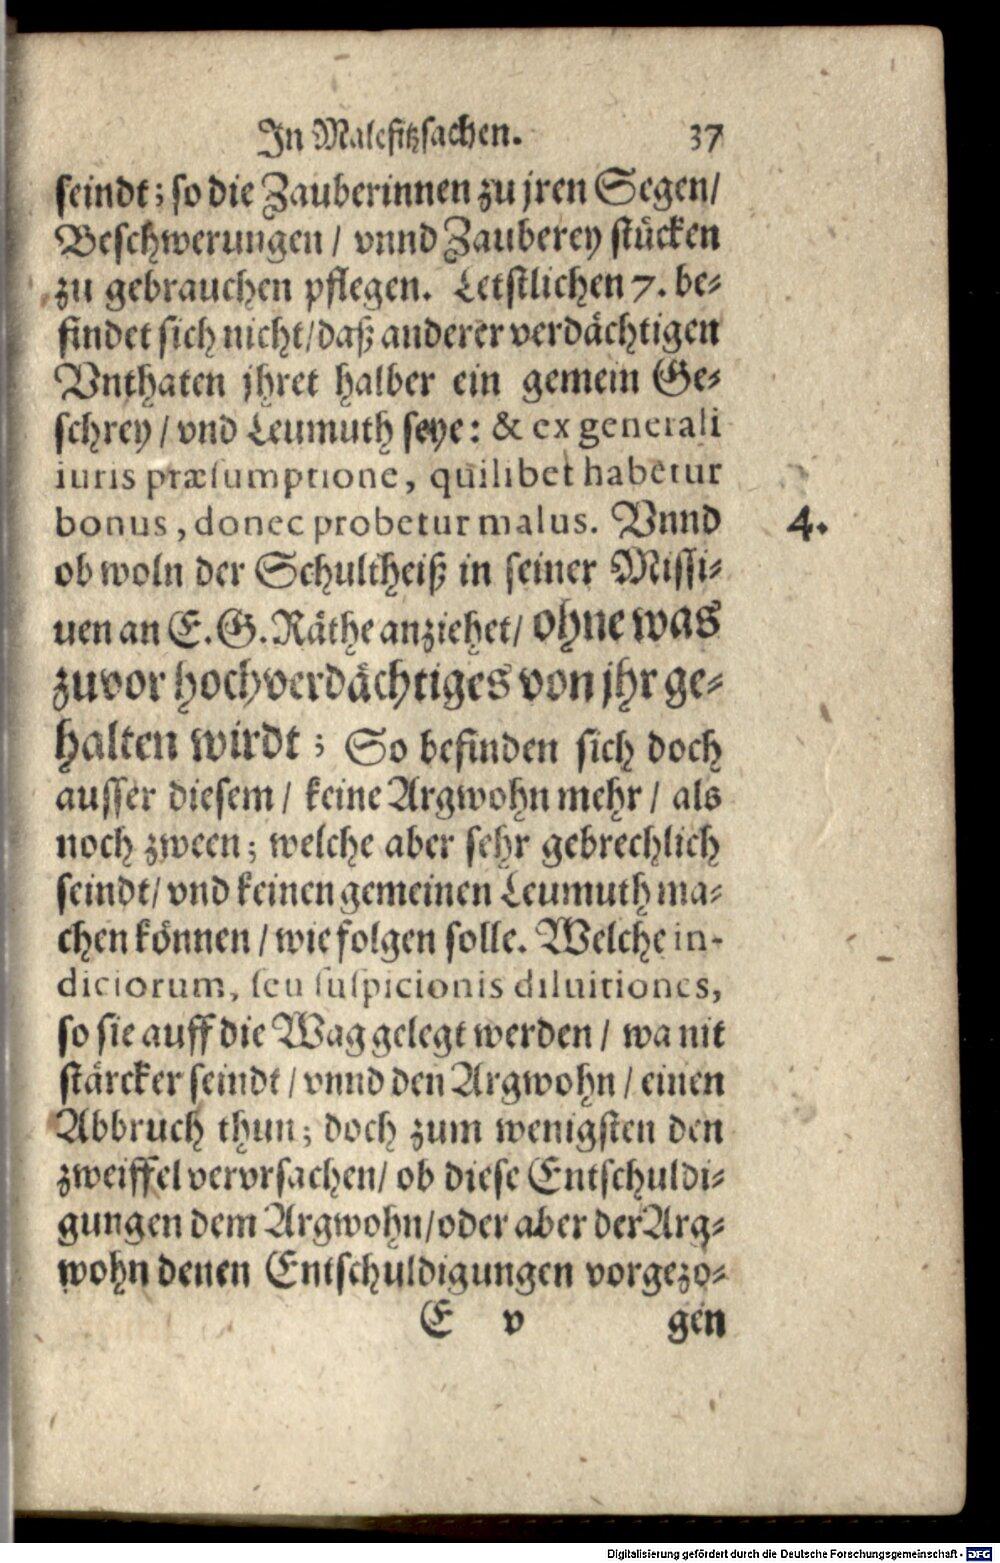 In Malefitzsachen. 37
seindt; so die Zauberinnen zu jren Segen/
Beschwerungen / vnnd Zauberey stücken
zu gebrauchen pflegen. Letstlichen 7. be-
findet sich nicht/daß anderer verdächtigen
Vnthaten jhret halber ein gemein Ge-
schrey / vnd Leumuth seye: & ex generali
iuris præsumptione, quilibet habetur
bonus, donec probetur malus. Vnnd 4.
ob woln der Schultheiß in seiner Missi-
uen an E. G. Räthe anziehet/ ohne was
zuvor hochverdächtiges von jhr ge-
halten wirdt ; So befinden sich doch
ausser diesem / keine Argwohn mehr / als
noch zween; welche aber sehr gebrechlich
seindt/ vnd keinen gemeinen Leumuth ma-
chen können / wie folgen solle. Welche in-
diciorum, seu suspicionis diluitiones,
so sie auff die Wag gelegt werden / wa nit
stärcker seindt / vnnd den Argwohn / einen
Abbruch thun; doch zum wenigsten den
zweiffel vervrsachen/ ob diese Entschuldi-
gungen dem Argwohn/oder aber der Arg-
wohn denen Entschuldigungen vorgezo-
E v gen
Digitalisierung gefördert durch die Deutsche Forschungsgemeinschaft - DFG